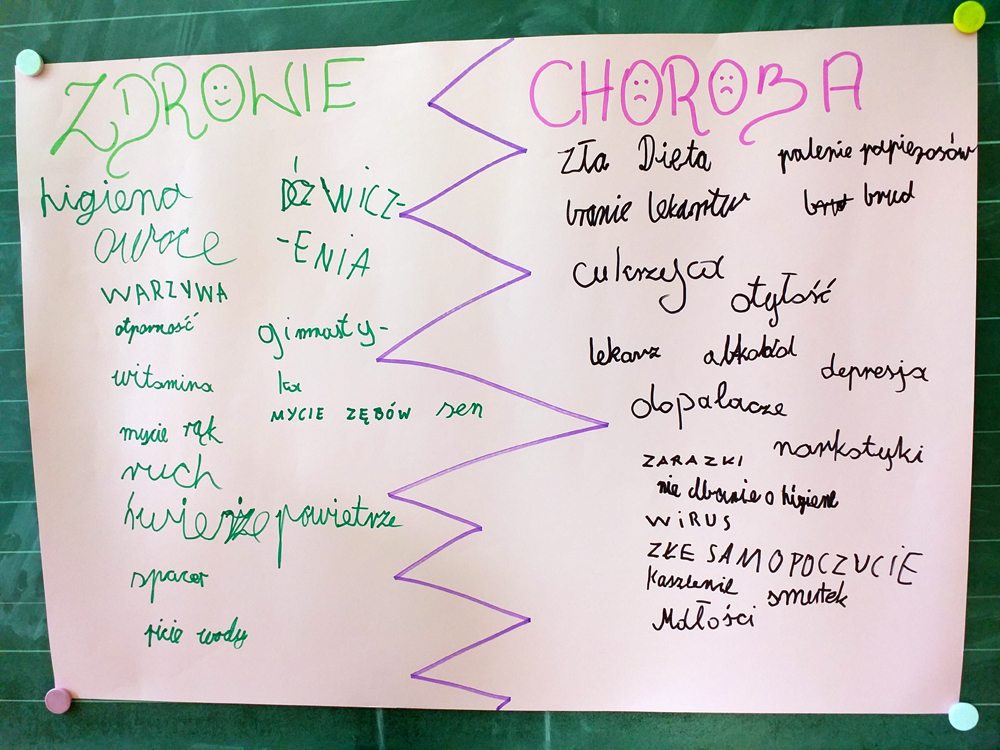 ZDROWIE
higiena
owoce
WARZYWA
otparność
witamina
mycie rąk
ruch
powietrze
spacer
picie wody
ĆZWICZ-
-ENIA
gimnasty-
ka
MYCIE ZĘBÓW sen
CHOROBA
zła Dieta palenie papierosów
branie lekarstw brud
cukrzyca
otyłość
lekarz alkohol depresja
dopalacze
narkotyki
ZARAZKI
nie dbanie o higiene
WiRUS
ZŁE SAMOPOCZUCIE
kaszlenie smutek
Mdłości